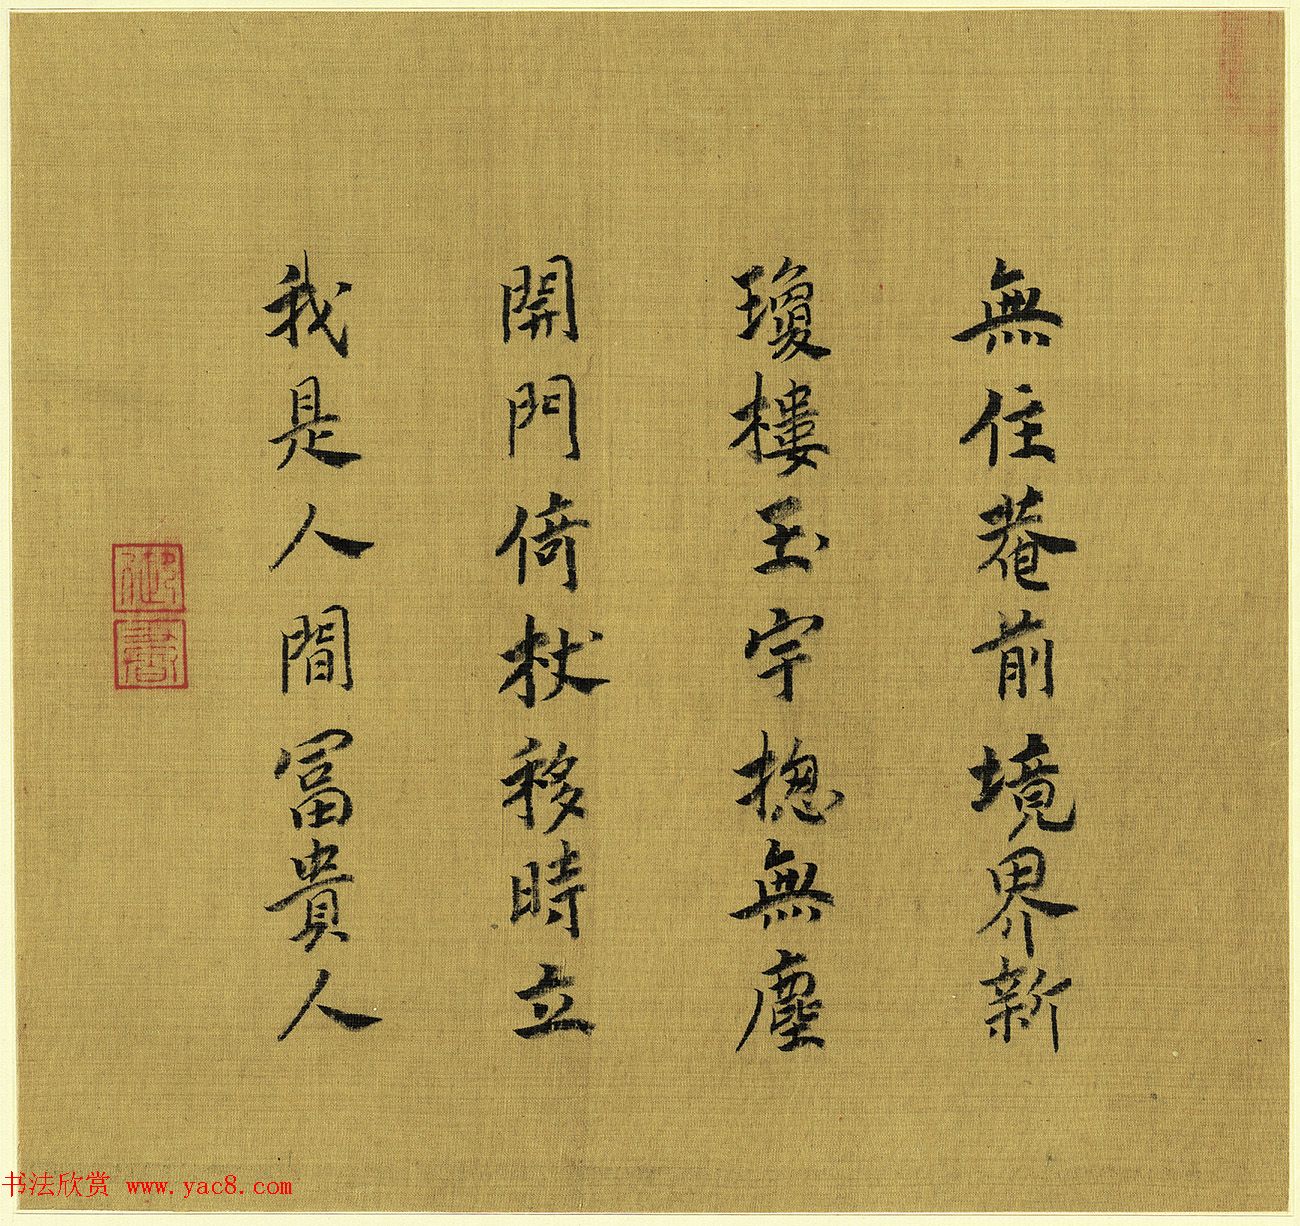 無住菴前境界新
瓊樓玉宇揔無塵
開門倚杖移時立
我是人間冨貴人
御書
书法欣赏 www.yac8.com